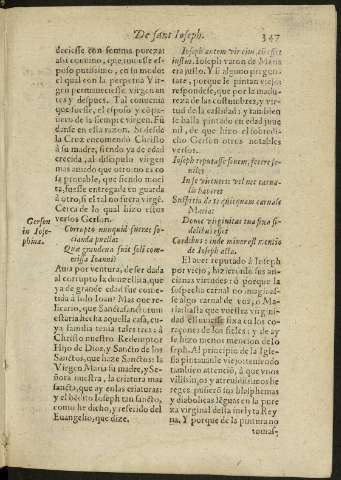 De sant Ioseph.
347
deciesse con semna pureza:
assi conuino, que fuesse es-
poso purissimo, en tu modo:
el qual con la perpetua Vir-
gen permaneciesse virgen an
tes y despues. Tal conuenia
que fuesse, el esposo y côpa-
ñero de la siempre virgen. Fú
danse en esta razon. Si desde
la Cruz encomendo Christo
à su madre, siendo ya de edad
crecida, al discipulo virgen
mas amado que otro: no es co
sa prouable, que siendo moci
ta, fuesse entregada en guarda
à otro, si el tal no fuera virgê.
Cerca de lo qual hizo estos
versos Gerson.
Gerson
in Iose-
phina.
Corrupto nunquid fueret so-
cianda puella:
Quæ grandeua fuit soli com-
missa Ioanni?
Auia por ventura, de ser dada
al corrupto la donzellita, que
ya de grande edad fue come-
tida à solo Ioan? Mas que re-
plicario, que Sanctasanctorum
estaria hecha aquella casa, cu-
ya familia tenia tales tres: à
Christo nuestro Redemptor
Hijo de Dios, y Sancto de los
Sanctos, que haze Sanctos: la
Virgen Maria su madre, y Se-
ñora nuestra, la criatura mas
sancta, que ay en las criaturas:
y el bêdito Ioseph tan sancto,
como he dicho, y referido del
Euangelio, que dize.
Ioseph autem vir eius, cũ esset
iustus. Ioseph varon de Maria
era justo. Y si alguno pregun-
tare, porque le pintan viejo:
respondesele, que por la madu-
reza de las costumbres, y vir-
tud de la castidad: y tambien
se halla pintado en edad juue
nil, de que hizo el sobredi-
cho Gerson otros notables
versos.
Ioseph reputasse senem, fecere se-
niles
In se virtutes vel nec carna-
lis haberet
Suspectio de te quicquam carnale
Maria:
Donec virginitas tua fixa fi-
delibus esset
Cordibus: inde minor est rẽtio
de Ioseph acta.
El auer reputado à Ioseph
por viejo, hizieronlo sus an-
cianas virtudes: ò porque la
sospecha carnal no imaginas-
se algo carnal de vos, ò Ma-
ria: hasta que vuestra virgini-
dad estuuiesse fixa en los co-
raçones de los fieles: y de ay
se hizo menos mencion de Io
seph. Al principio de la Igle
sia pintauanle viejo: teniendo
tambien attenciõ, à que vnos
vilissimos, y atreuidissimos he
reges pusieron sus blasphemas
y diabolicas lẽguas en la pure
za virginal desta inclyta Rey
na. Y porque de la pintura no
tomas-